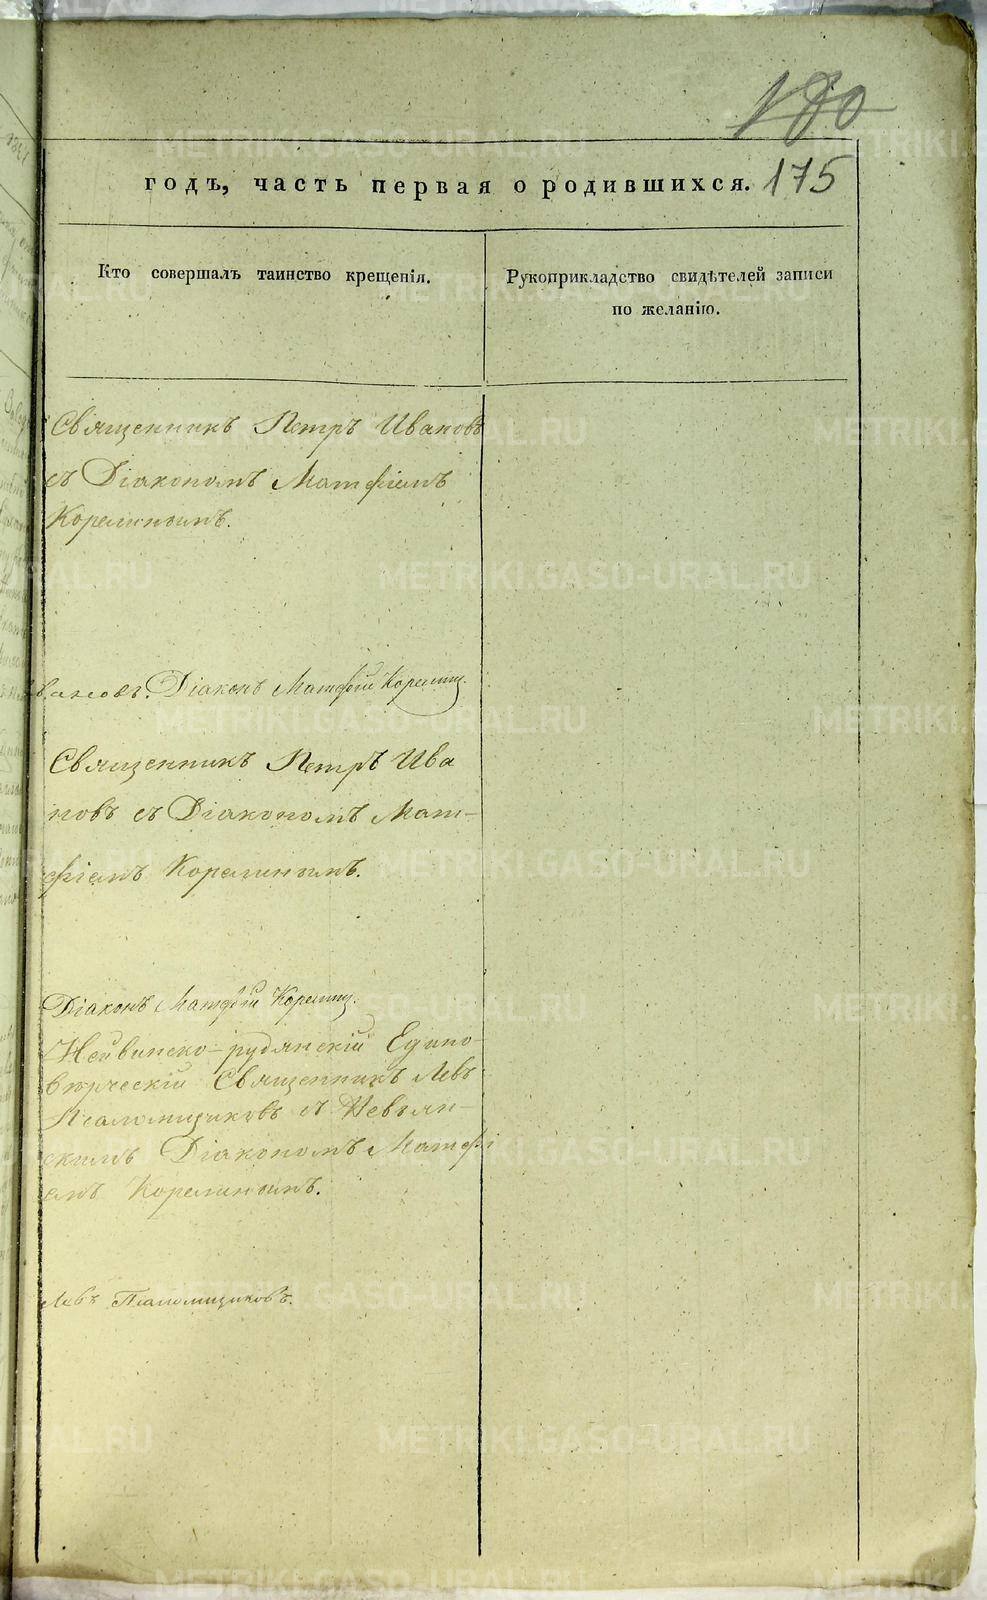 180
годъ, часть первая о родившихся. 175
Кто совершалъ таинство крещенія.
Рукоприкладство свидѣтелей записи
по желанію.
Священникъ Петръ Ивановъ
съ Діакономъ Матфіемъ
Корелинымъ.
Ивановъ. Діаконъ Матфій Корелинъ.
Священникъ Петръ Ива
новъ съ Діакономъ Мат-
фіемъ Корелинымъ.
Діаконъ Матфій Корелинъ.
Нейвинско-рудянскій Едино-
вѣрческій Священникъ Левъ
Псаломщиковъ съ Невьян-
скимъ Діакономъ Матфі
емъ Корелинымъ.
Левъ Псаломщиковъ.
METRIKI.GASO-URAL.RU